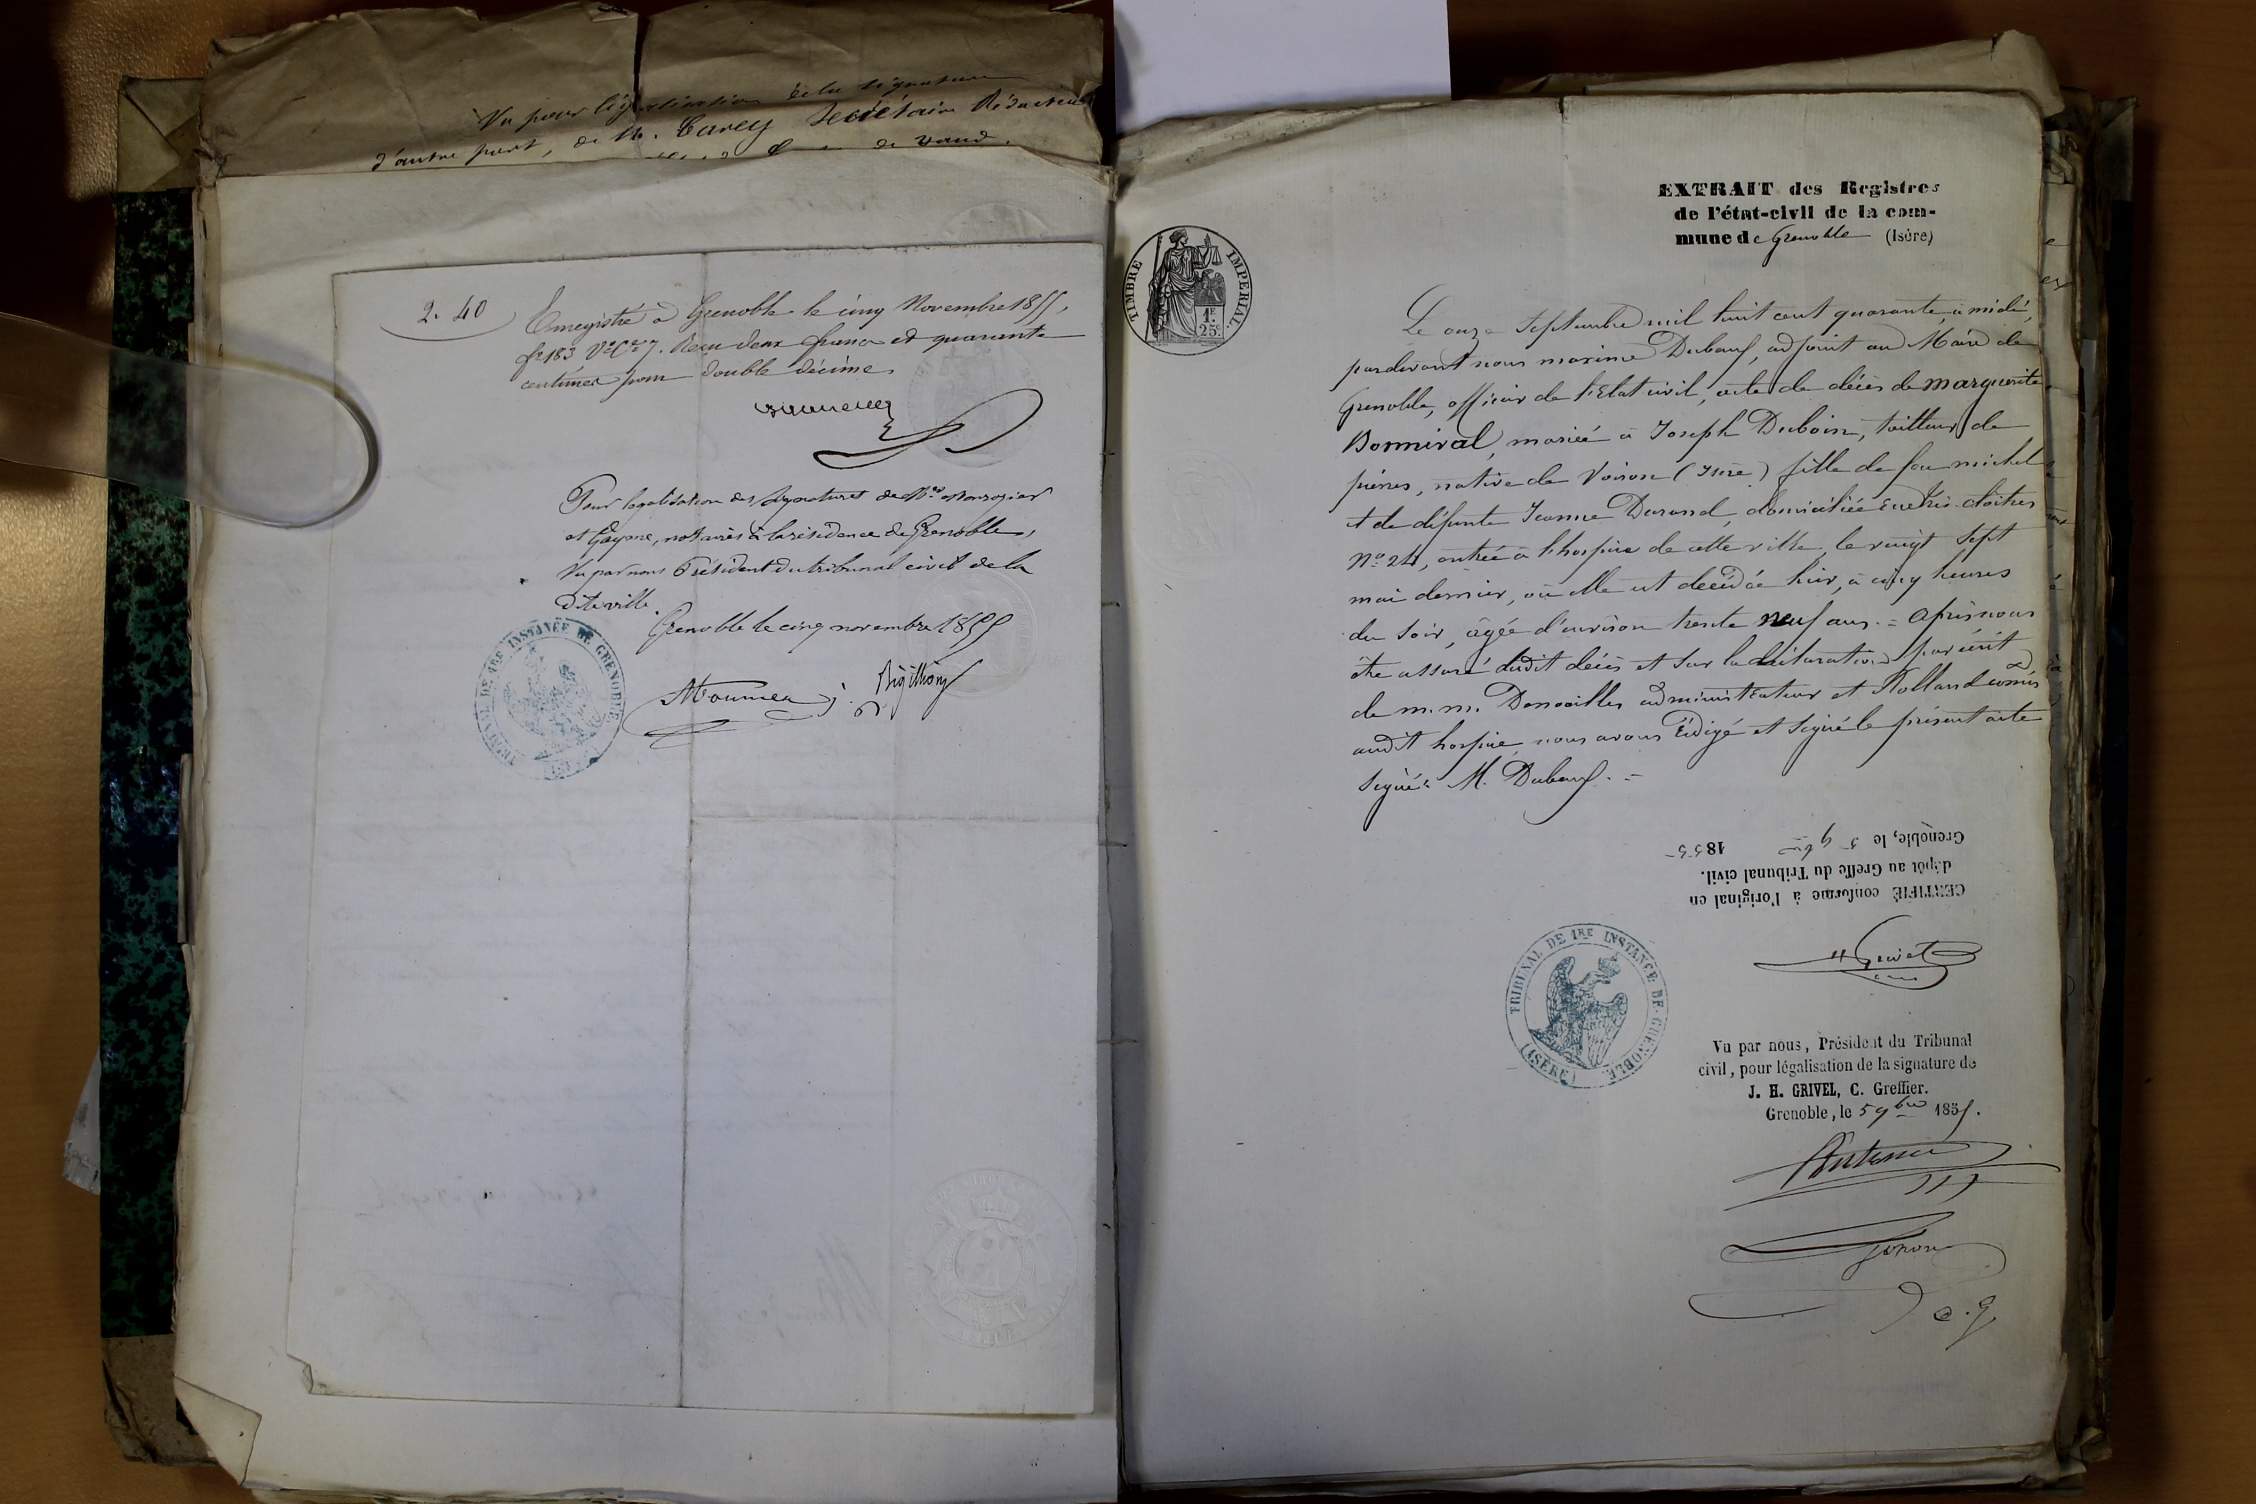 Vu pour légalisation de la signature
d'autre part, de M. Carey Secrétaire Rédacteur
de Vaud.
2. 40
Enregistré à Grenoble le cinq Novembre 1855,
f° 183 V° Cse 7. Reçu deux francs et quarante
centimes pour double décime.
Pour légalisation des signatures de Mes
et notaires à la résidence de Grenoble,
Vu par nous Président du tribunal civil de la
dite ville.
Grenoble le cinq novembre 1855
TRIBUNAL DE 1RE INSTANCE DE GRENOBLE
(ISÈRE)
EXTRAIT des Registres
de l'état-civil de la com-
mune de Grenoble (Isère)
TIMBRE IMPERIAL.
1F.
25c.
Le onze Septembre mil huit cent quarante, à midi,
pardevant nous maxime Dubeuf, adjoint au Maire de
Grenoble, officier de l'Etat civil, acte de décès de Marguerite
Bonnival, mariée à Joseph Duboin, tailleur de
pierres, native de Voiron (Isère) fille de feu michel
et de défunte Jeanne Durand, domiciliée rue très-cloitres
N° 24, entrée à l'hospice de cette ville le vingt sept
mai dernier, où elle est décédée hier, à cinq heures
du soir, âgée d'environ trente neuf ans. = Après nous
être assuré dudit décès et sur la déclaration par écrit
de m.m. administrateur et Rolland comis
audit hospice, nous avons rédigé et signé le présent acte
signé: M. Dubeuf. =
CERTIFIÉ conforme à l'original en
dépôt au Greffe du Tribunal civil.
Grenoble, le 5 9bre 1855
H Grivel
TRIBUNAL DE 1RE INSTANCE DE GRENOBLE
(ISÈRE)
Vu par nous, Président du Tribunal
civil, pour légalisation de la signature de
J. H. GRIVEL, C. Greffier.
Grenoble, le 5 9bre 1855.
c. g